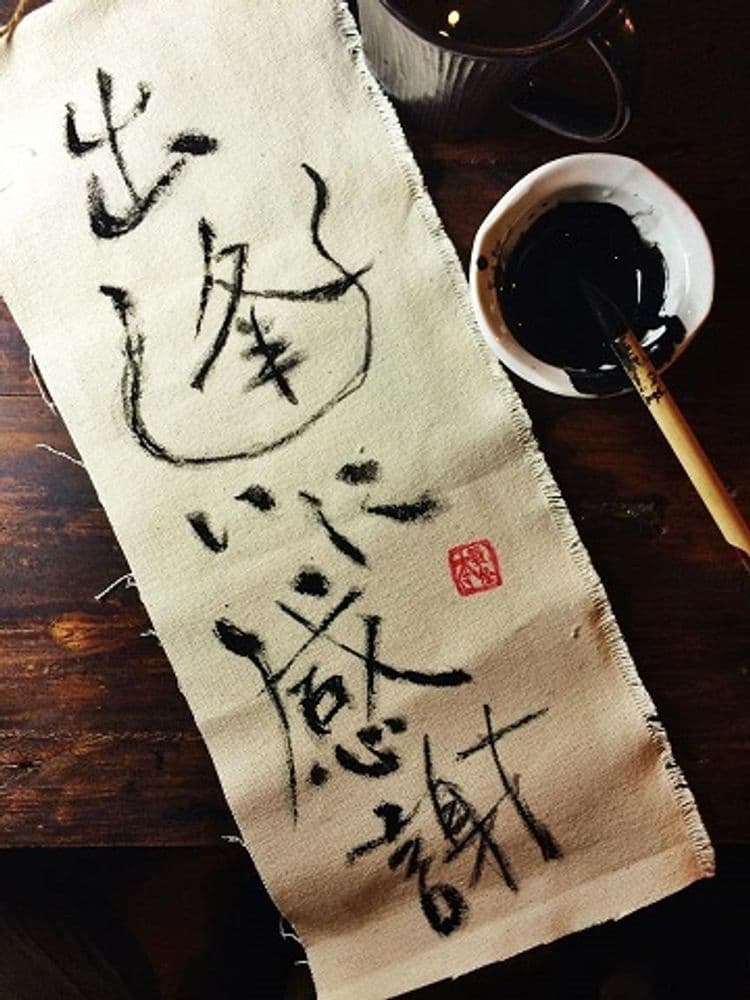 出逢いに感謝